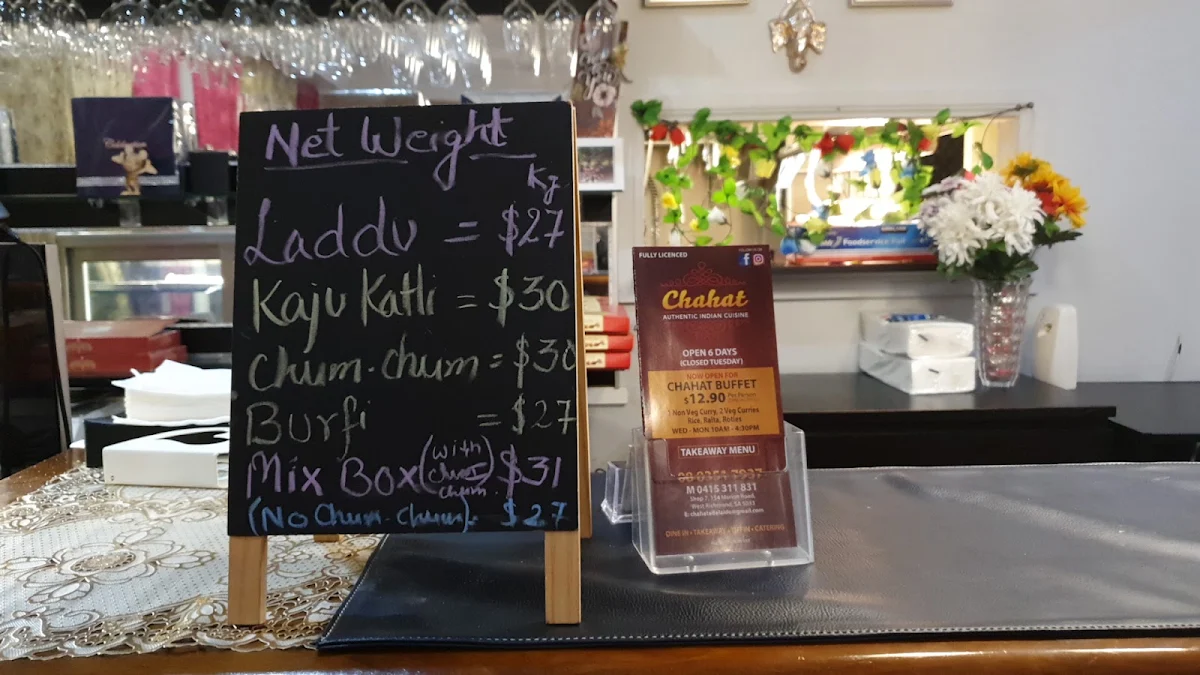 Net Weight
Kg
Laddu = $27
Kaju Katli = $30
Chum-chum = $30
Burfi = $27
Mix Box (with chum chum) $31
(No Chum-chum). $27
FULLY LICENCED
Chahat
AUTHENTIC INDIAN CUISINE
OPEN 6 DAYS
(CLOSED TUESDAY)
NOW OPEN FOR
CHAHAT BUFFET
$12.90 Per Person
1 Non Veg Curry, 2 Veg Curries
Rice, Raita, Roties
WED - MON 10AM - 4:30PM
TAKEAWAY MENU
M 0415 311 831
West Richmond, SA 5033
DINE IN • TAKEAWAY • TIFFIN • CATERING
Foodservice